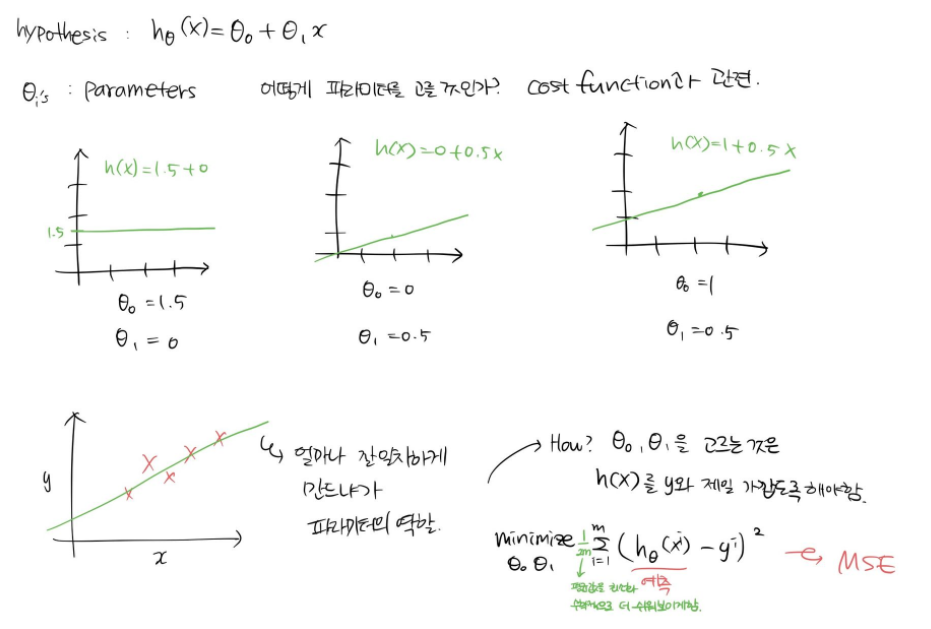 hypothesis : hθ(x) = θ₀ + θ₁x
θᵢ's : Parameters 어떻게 파라미터를 고를 것인가? cost function과 관련.
h(x)=1.5+0
1.5
θ₀ =1.5
θ₁ = 0
h(x)=0+0.5x
θ₀ =0
θ₁ =0.5
h(x)=1+0.5x
θ₀ =1
θ₁ =0.5
y
x
얼마나 잘 일치하게
만드냐가
파라미터의 역할.
How? θ₀, θ₁을 고르는 것은
h(x)를 y와 제일 가깝도록 해야함.
minimize 1/2m Σ (hθ(xⁱ) - yⁱ)² MSE
θ₀ θ₁ i=1 m
예측
수학적으로 더 쉬워보이게함.